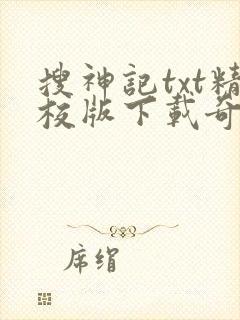 搜神記txt精
校版下載奇
席绢